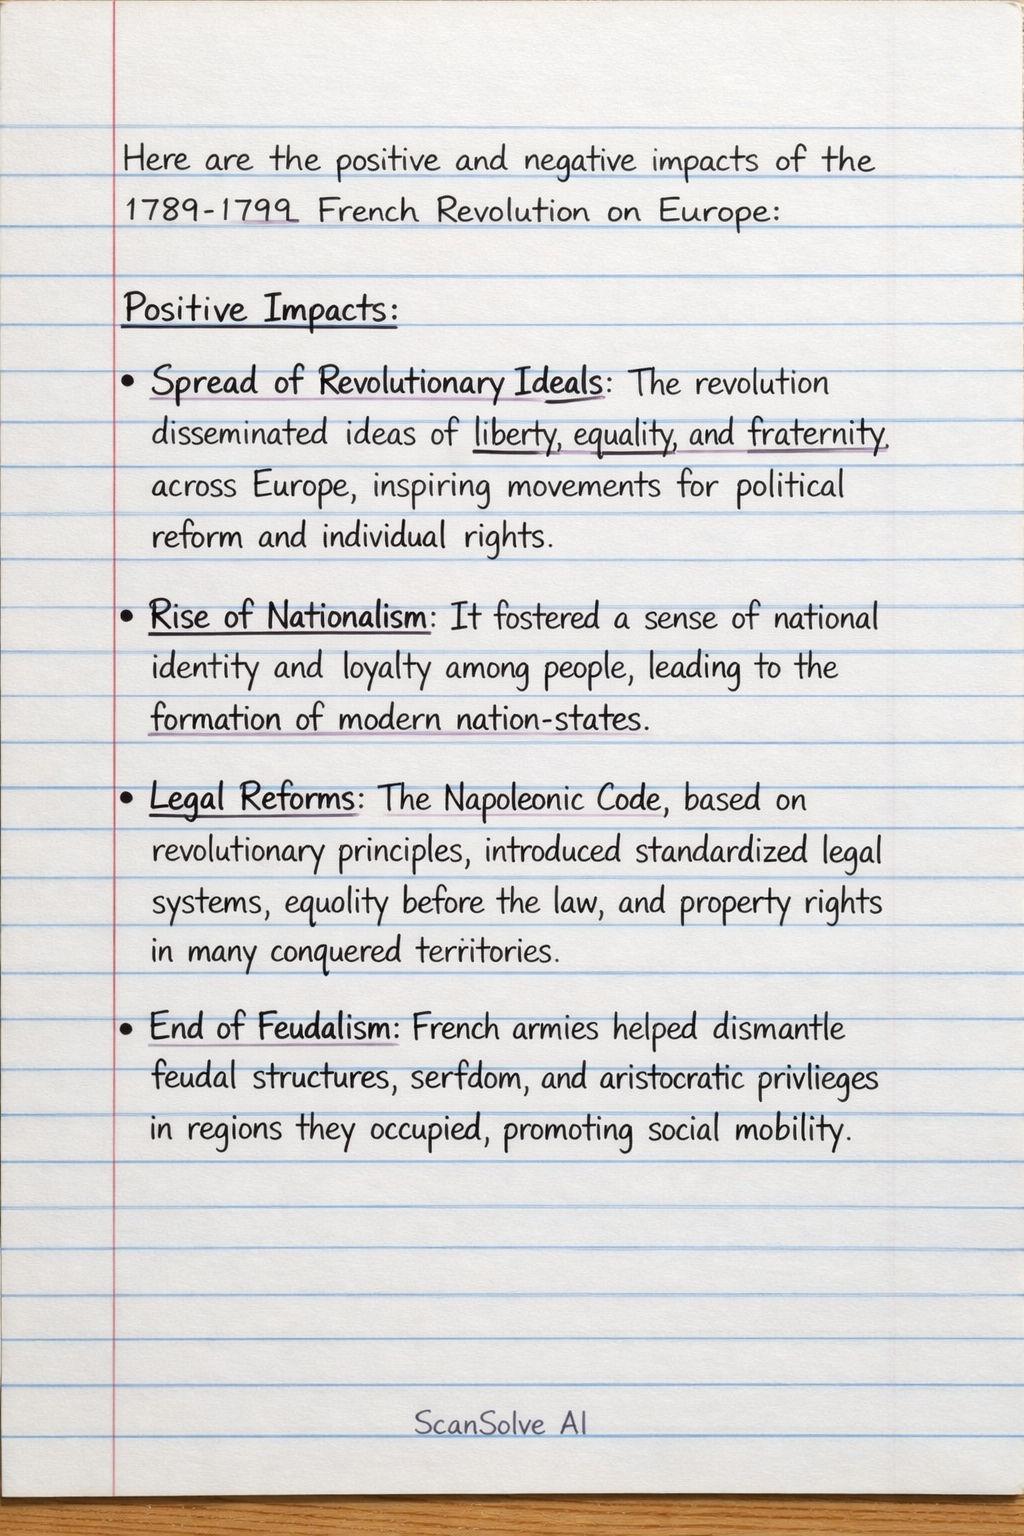 Here are the positive and negative impacts of the
1789-1799 French Revolution on Europe:
Positive Impacts:
• Spread of Revolutionary Ideals: The revolution
disseminated ideas of liberty, equality, and fraternity,
across Europe, inspiring movements for political
reform and individual rights.
• Rise of Nationalism: It fostered a sense of national
identity and loyalty among people, leading to the
formation of modern nation-states.
• Legal Reforms: The Napoleonic Code, based on
revolutionary principles, introduced standardized legal
systems, equolity before the law, and property rights
in many conquered territories.
• End of Feudalism: French armies helped dismantle
feudal structures, serfdom, and aristocratic privlieges
in regions they occupied, promoting social mobility.
ScanSolve AI